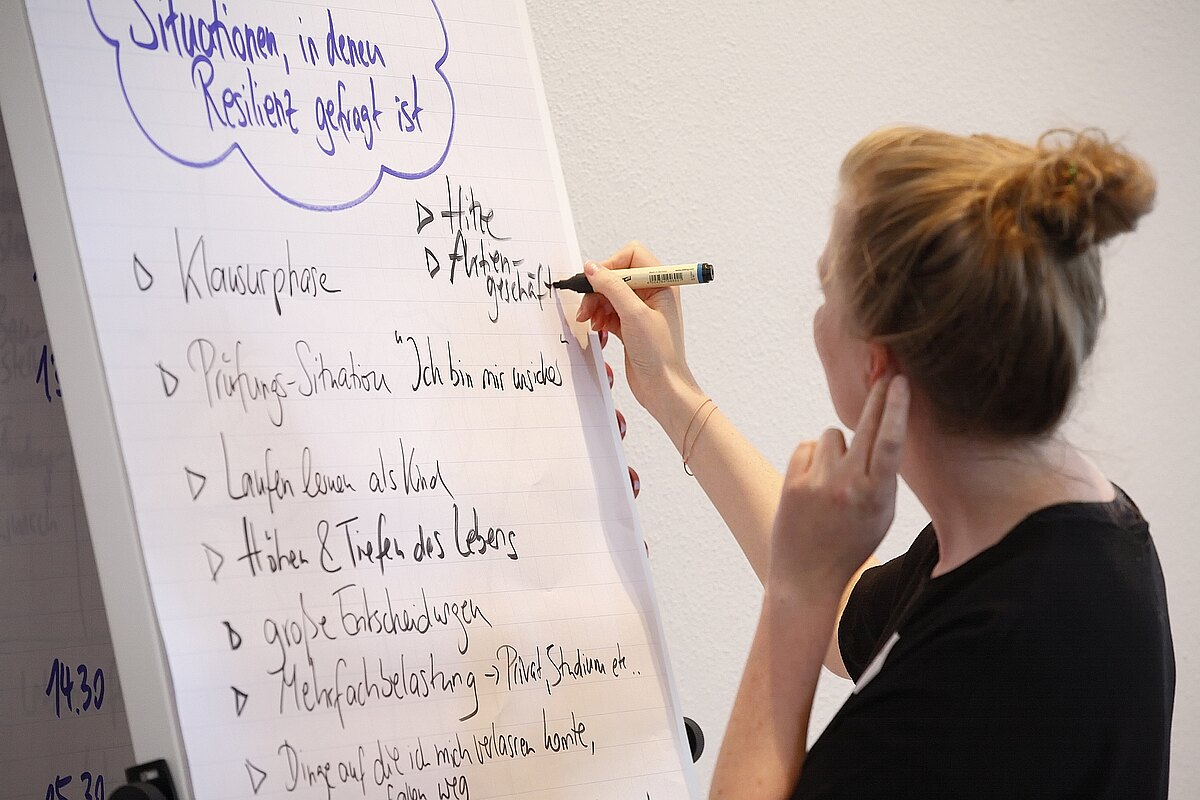 Situationen, in denen
Resilienz gefragt ist
▷ Hitze
▷ Aktien-
geschäft
▷ Klausurphase
▷ Prüfungs-Situation "Ich bin mir unsicher"
▷ Laufen lernen als Kind
▷ Höhen & Tiefen des Lebens
▷ große Entscheidungen
▷ Mehrfachbelastung → Privat, Studium etc..
▷ Dinge auf die ich mich verlassen konnte,
fallen weg
14.30
15.30